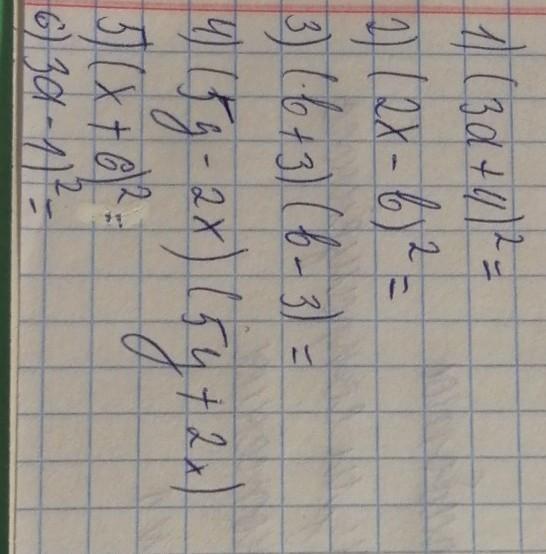 1) (3a+4)²=
2) (2x-b)²=
3) (b+3)(b-3)=
4) (5y-2x)(5y+2x)
5) (x+6)²=
6) 3a-1)²=